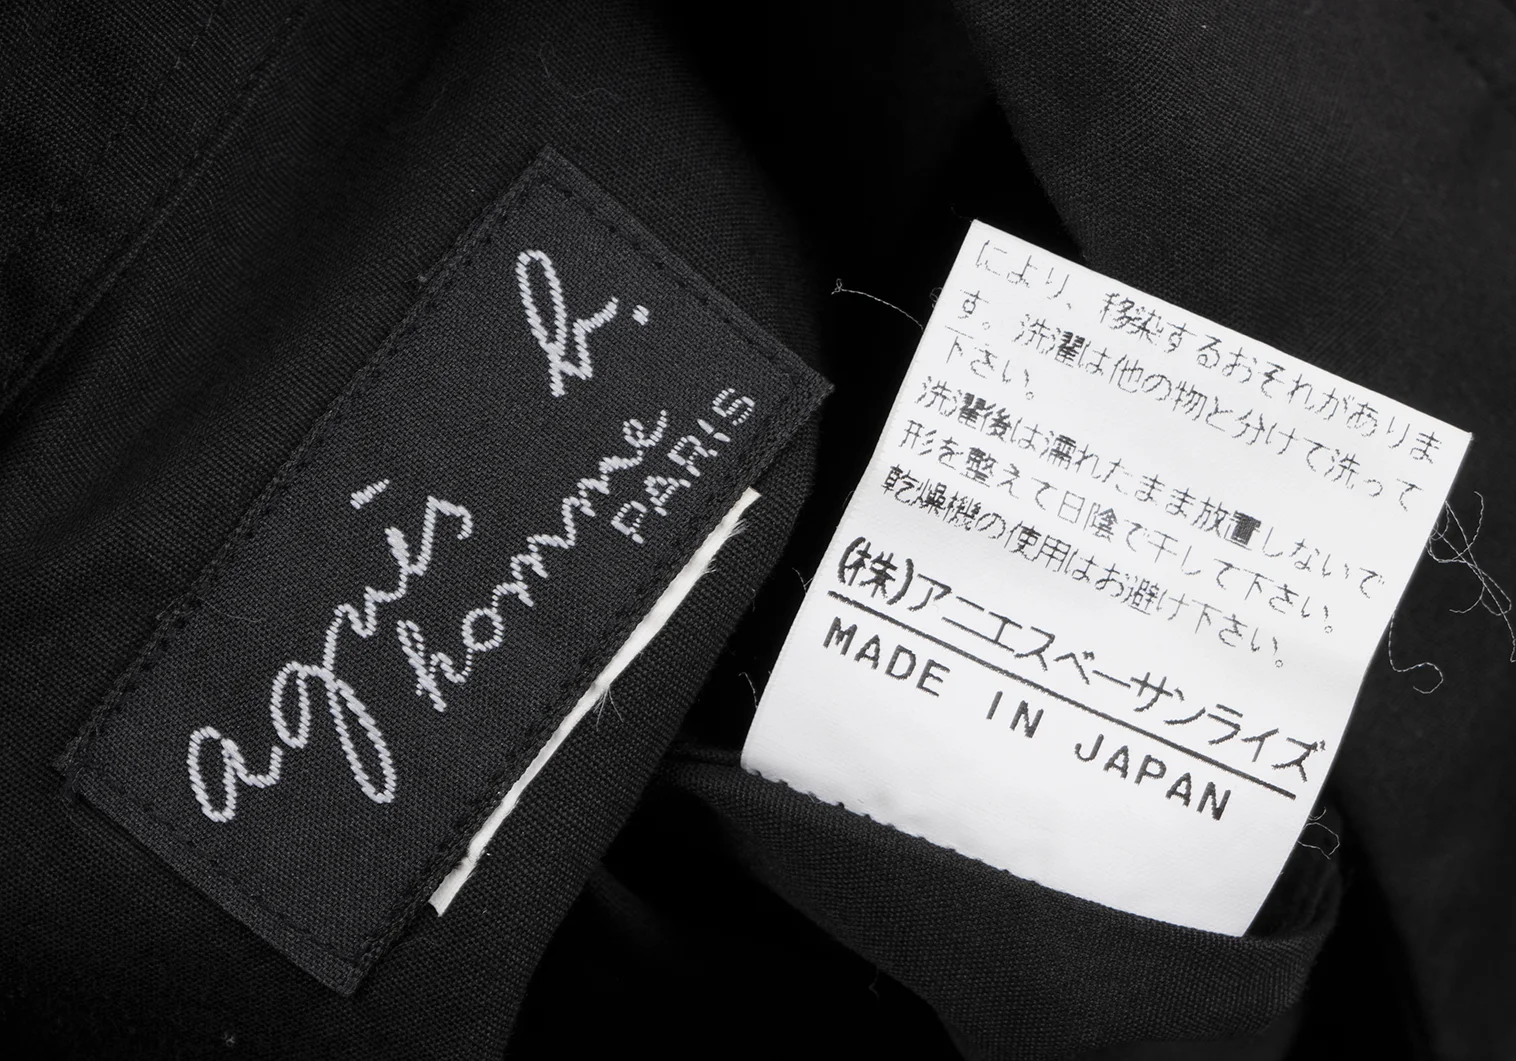 agnès b.
homme
PARIS
により、移染するおそれがありま
す。洗濯は他の物と分けて洗って
下さい。
洗濯後は濡れたまま放置しないで
形を整えて日陰で干して下さい。
乾燥機の使用はお避け下さい。
(株)アニエスベーサンライズ
MADE IN JAPAN